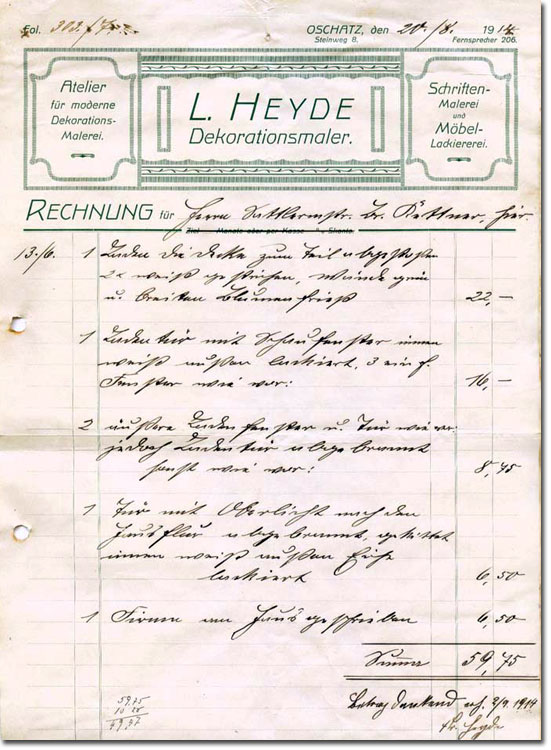 Fol. 303./7.
OSCHATZ, den 20./8. 1914
Steinweg 8. Fernsprecher 206.
Atelier
für moderne
Dekorations-
Malerei.
L. HEYDE
Dekorationsmaler.
Schriften-
Malerei
und
Möbel-
Lackiererei.
RECHNUNG für Herrn Sattlermstr. Br. Kettner, hier.
Ziel Monate ober per Kasse % Skonto
13./6. 1 Laden die Decke zum Teil abgestoßen
2x weiß gestrichen, Wände grün
u. breiten Blumenfrieß 22,—
1 Ladentür mit Schaufenster innen
weiß außen lackiert, 3 einf.
Fenster wie vor: 16,—
2 äußere Ladenfenster u. Tür wie vor:
jedoch Ladentür abgebrannt
sonst wie vor: 8,75
1 Tür mit Oberlicht nach den
Hausflur abgebrannt, gekittet
innen weiß außen Eiche
lackiert 6,50
1 Firma am Haus geschrieben 6,50
Summa 59,75
59,75
Betrag dankend erh. 2/9. 1914
Heyde